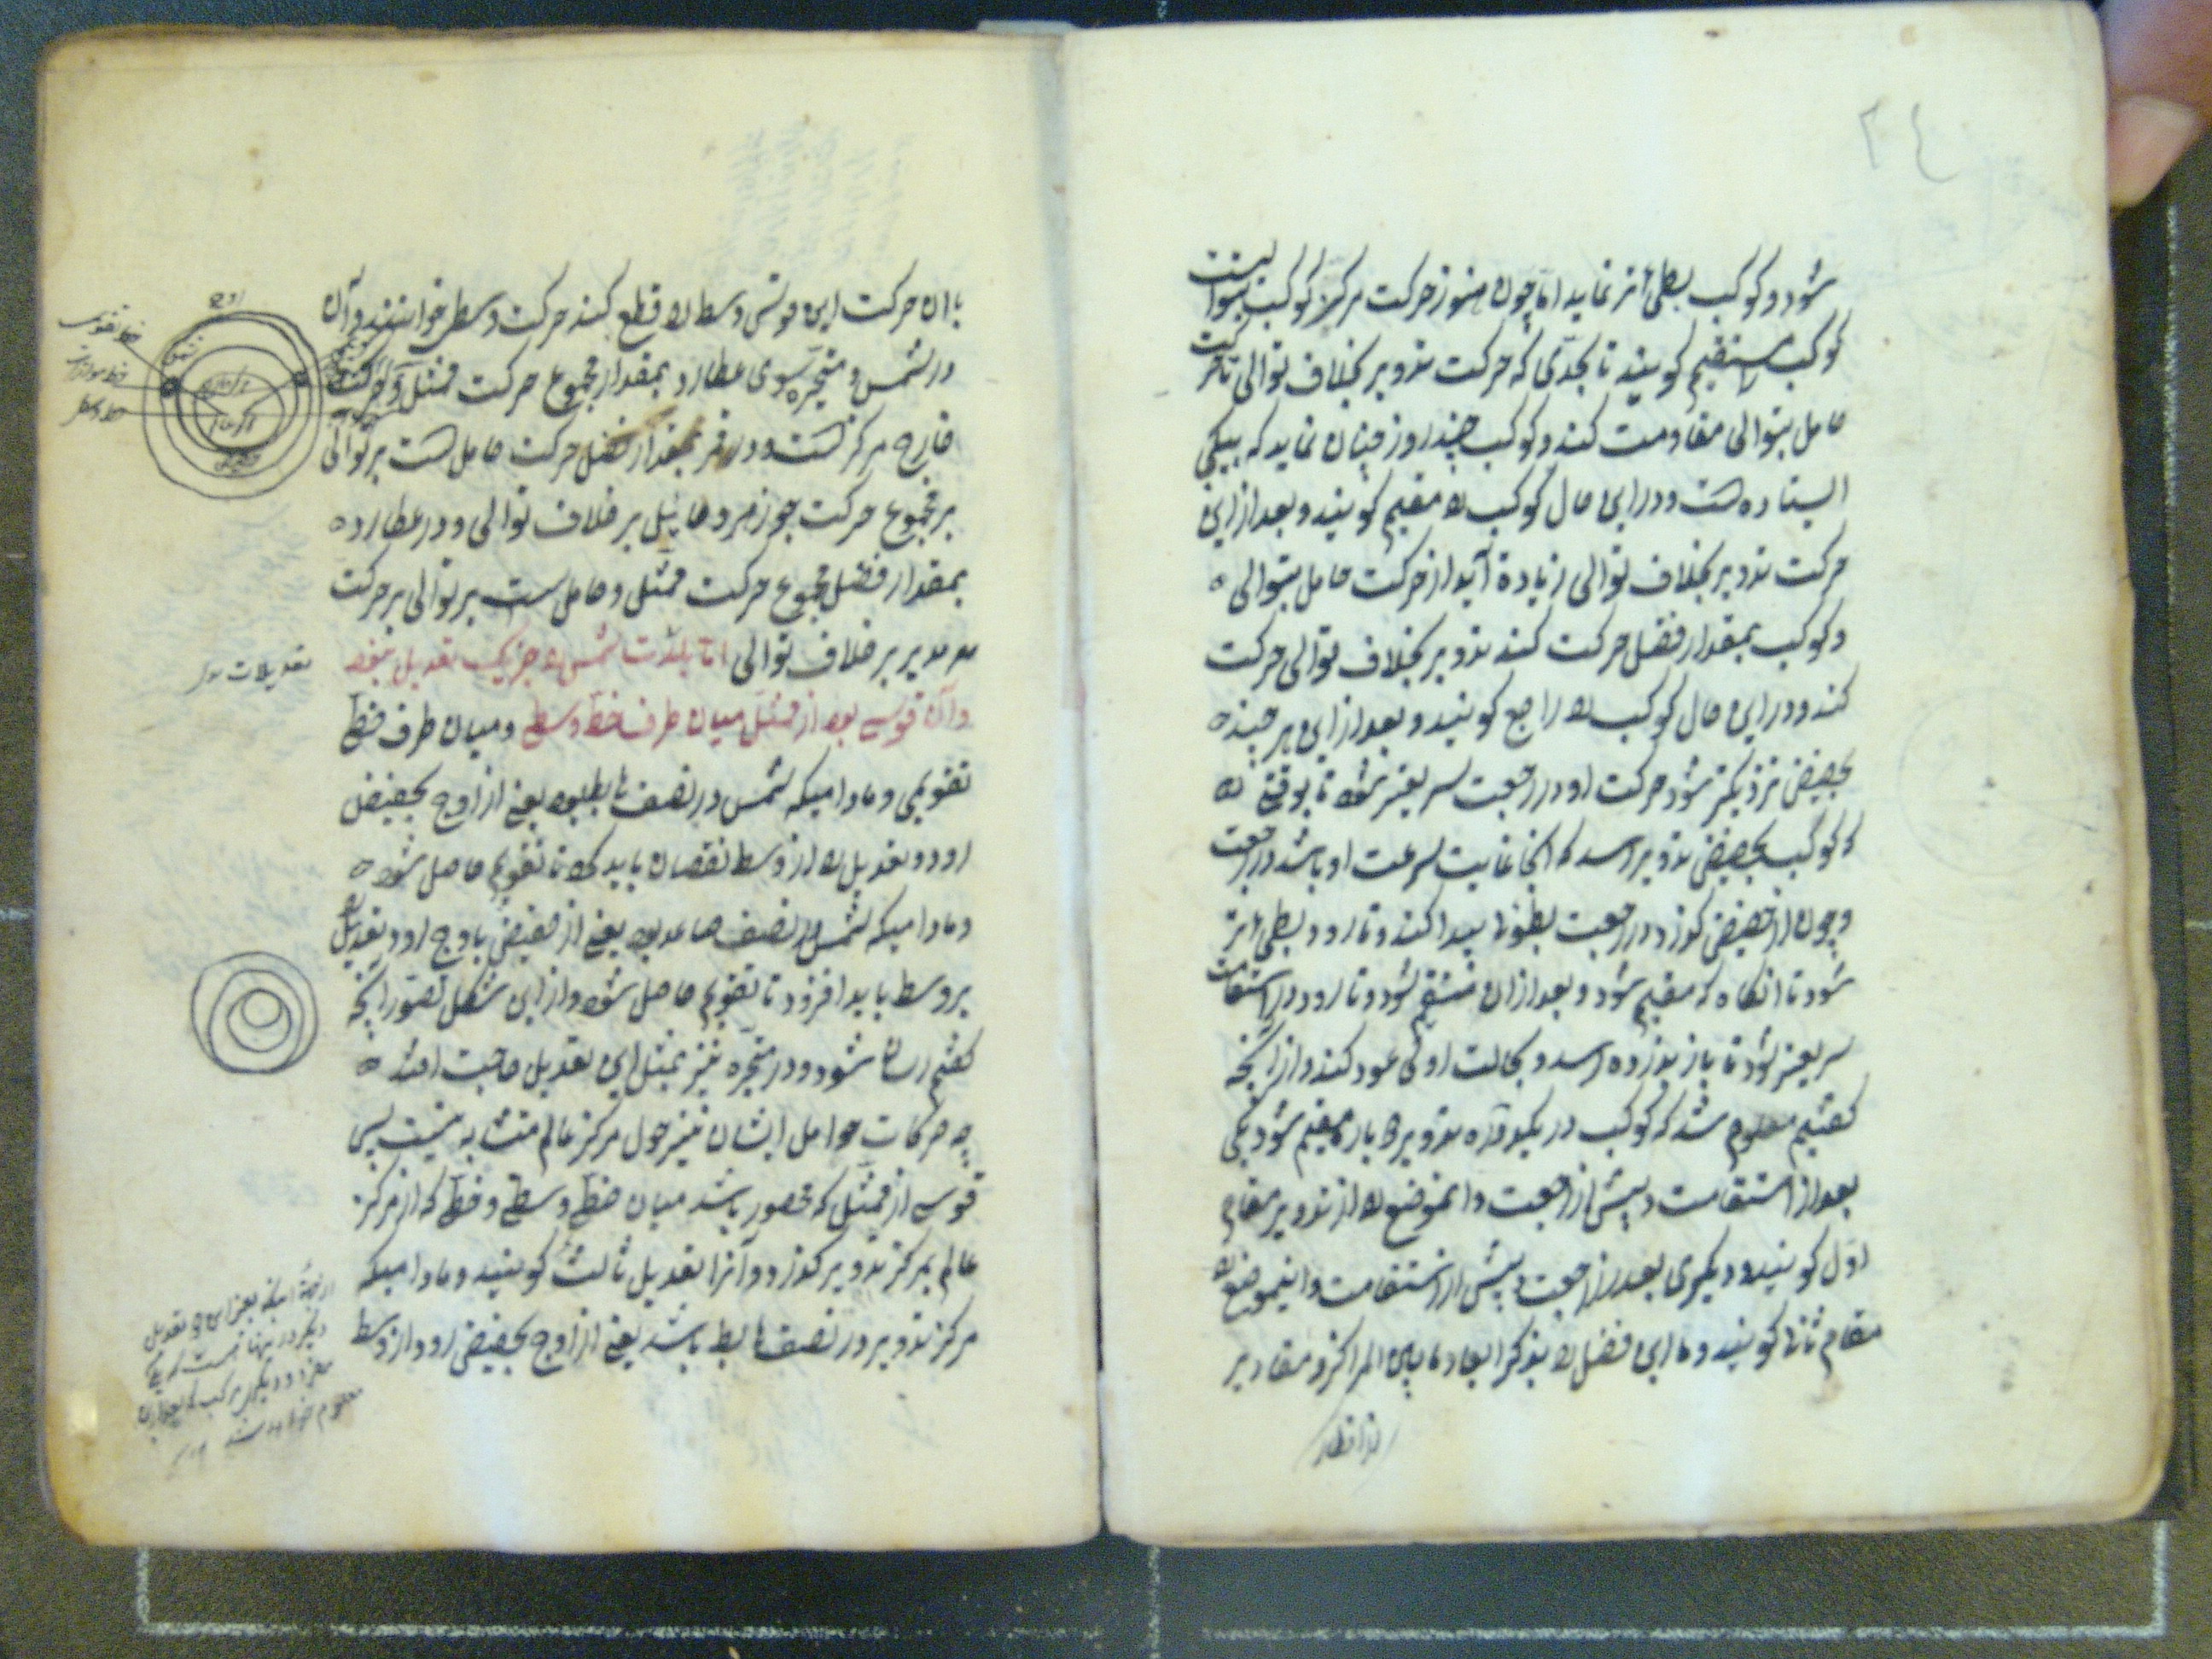 شود و کوکب بطی‌تر نماید اما چون هنوز حرکت مرکز کوکب بتوالیست
کوکب را مستقیم گویند تا بحدی که حرکت تدویر بخلاف توالی با حرکت
حامل بتوالی مقاومت کند و کوکب چند روز چنان نماید که بیکجای
ایستاده است و در این حال کوکب را مقیم گویند و بعد از این
حرکت تدویر بخلاف توالی زیادة آید از حرکت حامل بتوالی
و کوکب بمقدار فضل حرکت کند تدویر بخلاف توالی حرکت
کند و در این حال کوکب را راجع گویند و بعد از این هر چند
بحضیض نزدیکتر شود حرکت او در رجعت سریعتر شود تا بوقتی
که کوکب بحضیض تدویر رسد که آنجا غایت سرعت او باشد در رجعت
و چون از حضیض گذرد در رجعت بطوء پیدا کند و تا رود بطی‌تر
شود تا آنگاه که مقیم شود و بعد از آن مستقیم شود و تا رود در استقامت
سریعتر شود تا باز بذروه رسد و بحالت اولی عود کند و از آنچه
گفتیم معلوم شد که کوکب در یکدوره تدویر دو بار مقیم شود یکی
بعد از استقامت و پیش از رجعت و آنموضع را از تدویر مقام
اول گویند و دیگری بعد از رجعت و پیش از استقامت و اینموضع را
مقام ثانی گویند و ما این فصل را بذکر ابعاد ما بین المراکز و مقادیر
انصاف اقطار
بآن حرکت این قوس وسط را قطع کند حرکت وسط خوانند و آن
در شمس و متحیره سوی عطارد بمقدار مجموع حرکت ممثل و حرکت
خارج مرکز است و در قمر بمقدار فضل حرکت حامل است بر توالی
بر مجموع حرکت جوزهر و مایل بر خلاف توالی و در عطارد
بمقدار فضل مجموع حرکت ممثل و حامل ست بر توالی بر حرکت
مدیر بر خلاف توالی اما شمس را جز یک تعدیل نبود
و آن قوسی بود از ممثل میان طرف خط وسطی و میان طرف خط
تقویمی و مادامیکه شمس در نصف هابط بود یعنی از اوج بحضیض
رود تعدیل را از وسط نقصان باید کرد تا تقویم حاصل شود
و مادامیکه شمس در نصف صاعد بود یعنی از حضیض باوج رود تعدیل را
بر وسط باید افزود تا تقویم حاصل شود و از این شکل تصور آنچه
گفتیم آسان شود و در متحیره نیز بمثل این تعدیل حاجت افتد
چه حرکات حوامل ایشان نیز حول مرکز عالم متشابه نیست پس
قوسی از ممثل که محصور باشد میان خط وسطی و خطی که از مرکز
عالم بمرکز تدویر گذرد و آنرا تعدیل ثالث گویند و مادامیکه
مرکز تدویر در نصف هابط باشد یعنی از اوج بحضیض رود از وسط
اوج
خط تقویمی
حضیض
تعدیلات